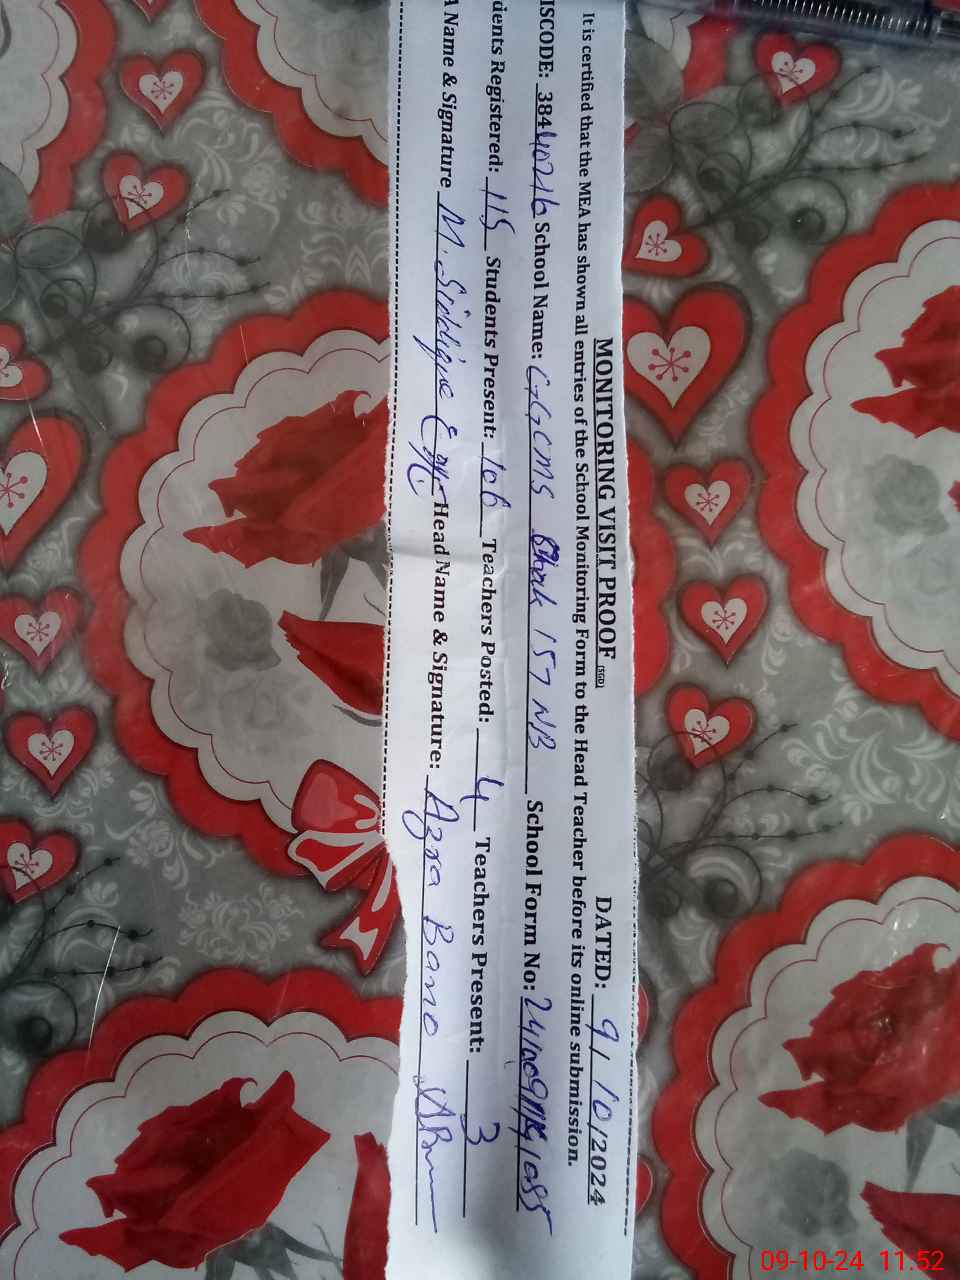 MONITORING VISIT PROOF (SGD) DATED: 9 / 10/2024
It is certified that the MEA has shown all entries of the School Monitoring Form to the Head Teacher before its online submission.
ISCODE: 38440216 School Name: GGCMS Chak 157 NB School Form No:
dents Registered: 115 Students Present: 106 Teachers Posted: 4 Teachers Present: 3
A Name & Signature M. Siddique Head Name & Signature: Azra Bano
09-10-24 11:52